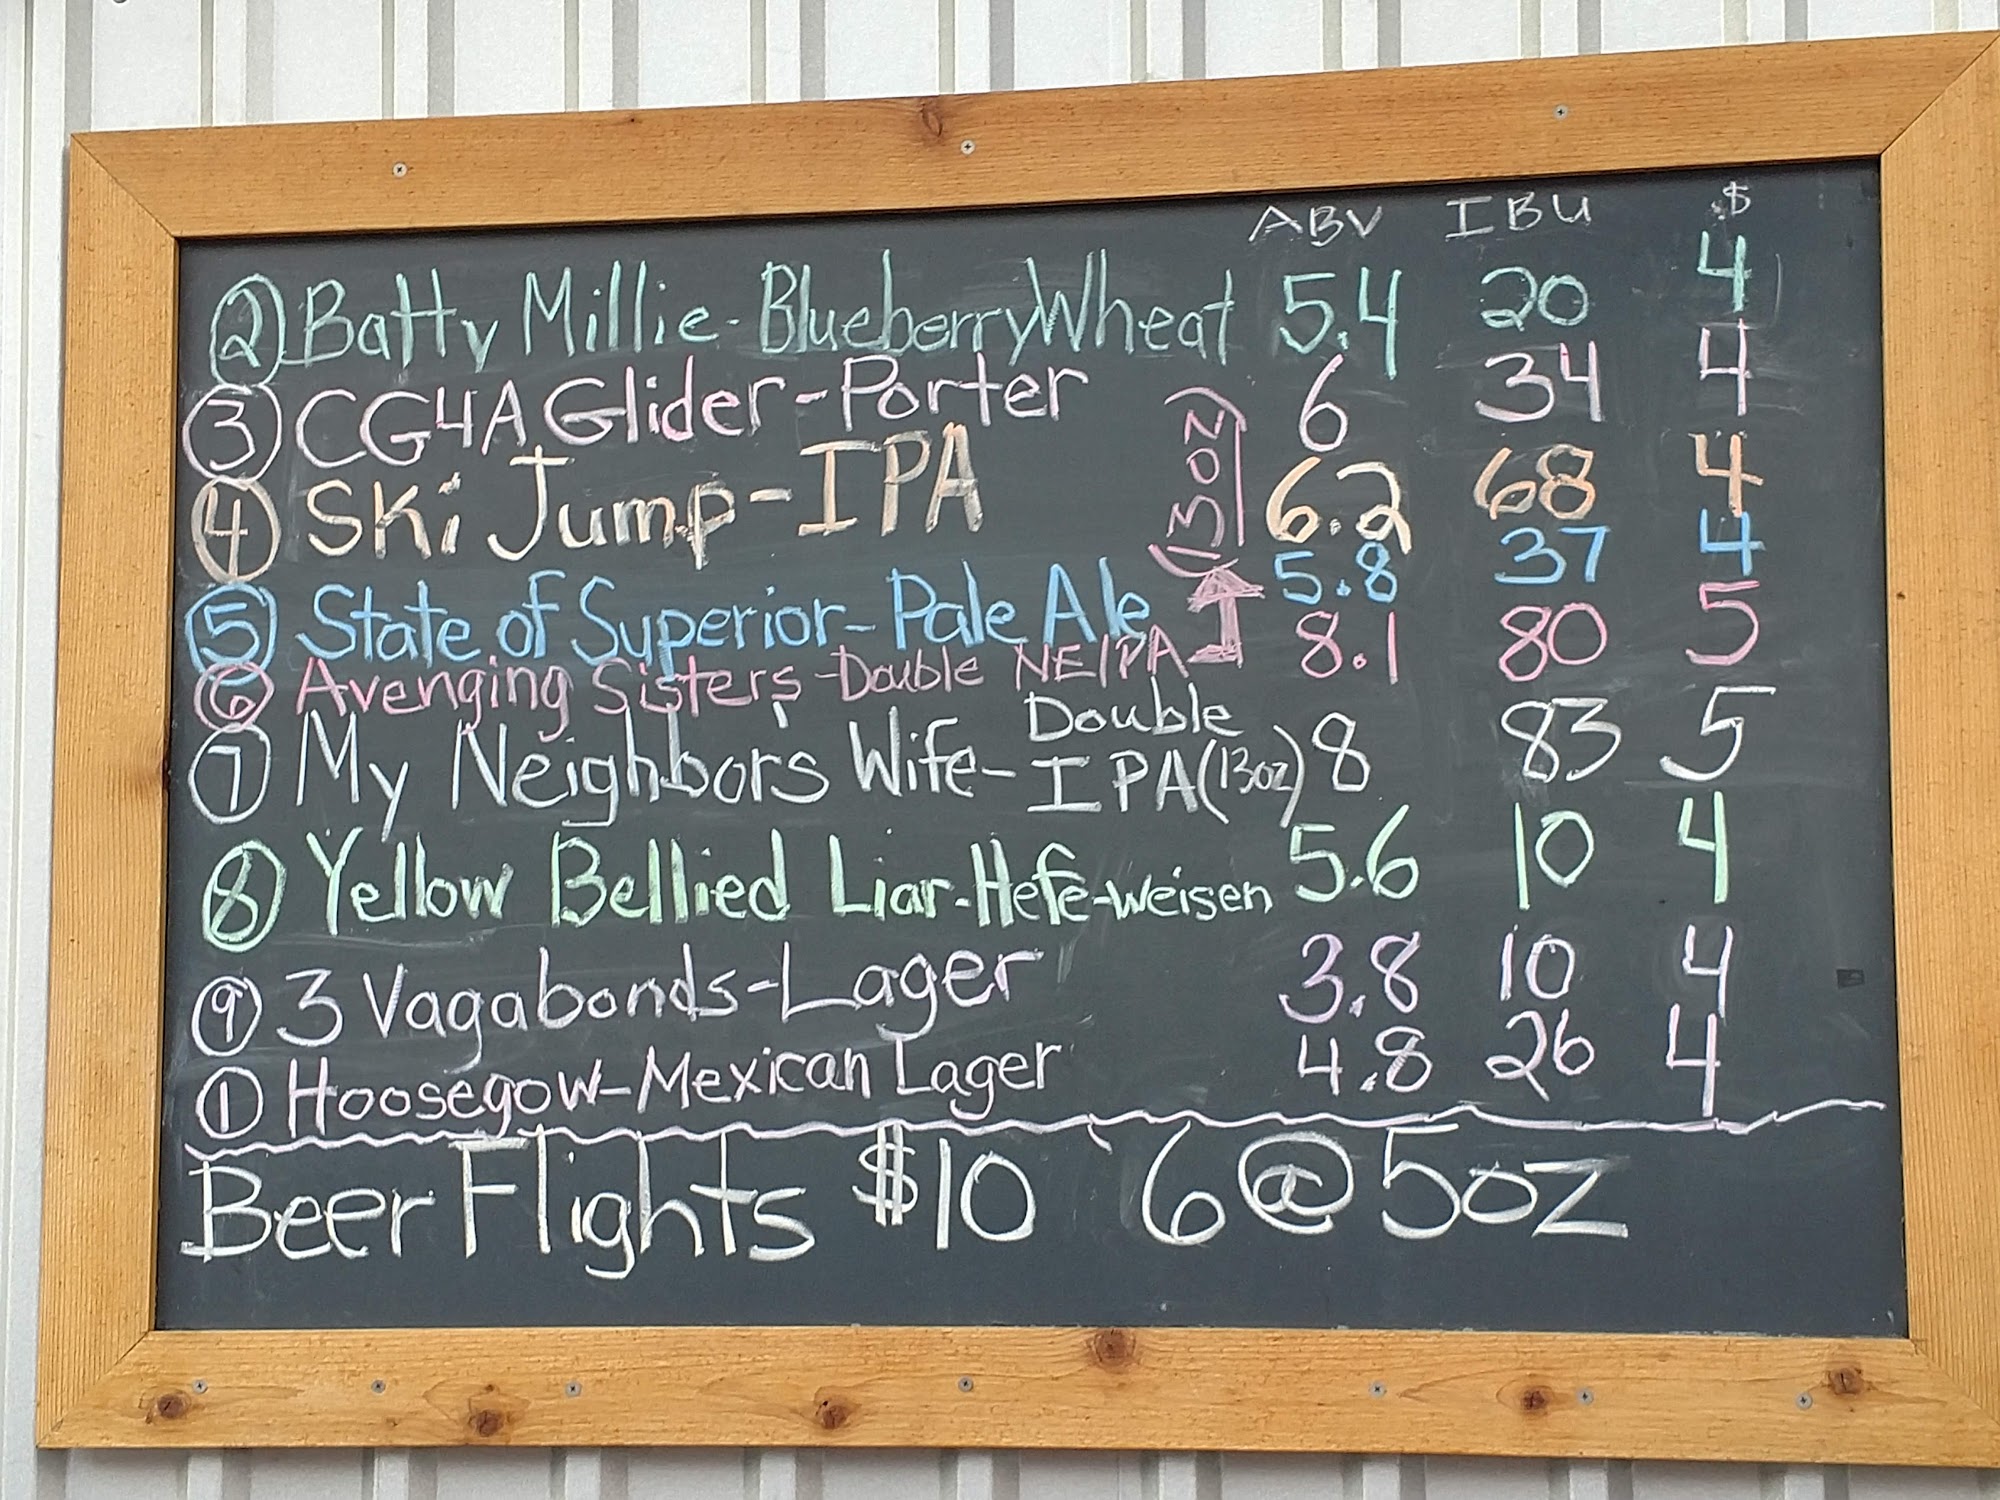 ABV IBU $
2 Batty Millie - Blueberry Wheat 5.4 20 4
3 CG4A Glider - Porter 6 34 4
4 Ski Jump - IPA 6.2 68 4
5 State of Superior - Pale Ale 5.8 37 4
6 Avenging Sisters - Double NEIPA (13oz) 8.1 80 5
7 My Neighbor's Wife - Double IPA (13oz) 8 83 5
8 Yellow Bellied Liar - Hefe-weisen 5.6 10 4
9 3 Vagabonds - Lager 3.8 10 4
1 Hoosegow - Mexican Lager 4.8 26 4
Beer Flights $10 6 @ 5oz